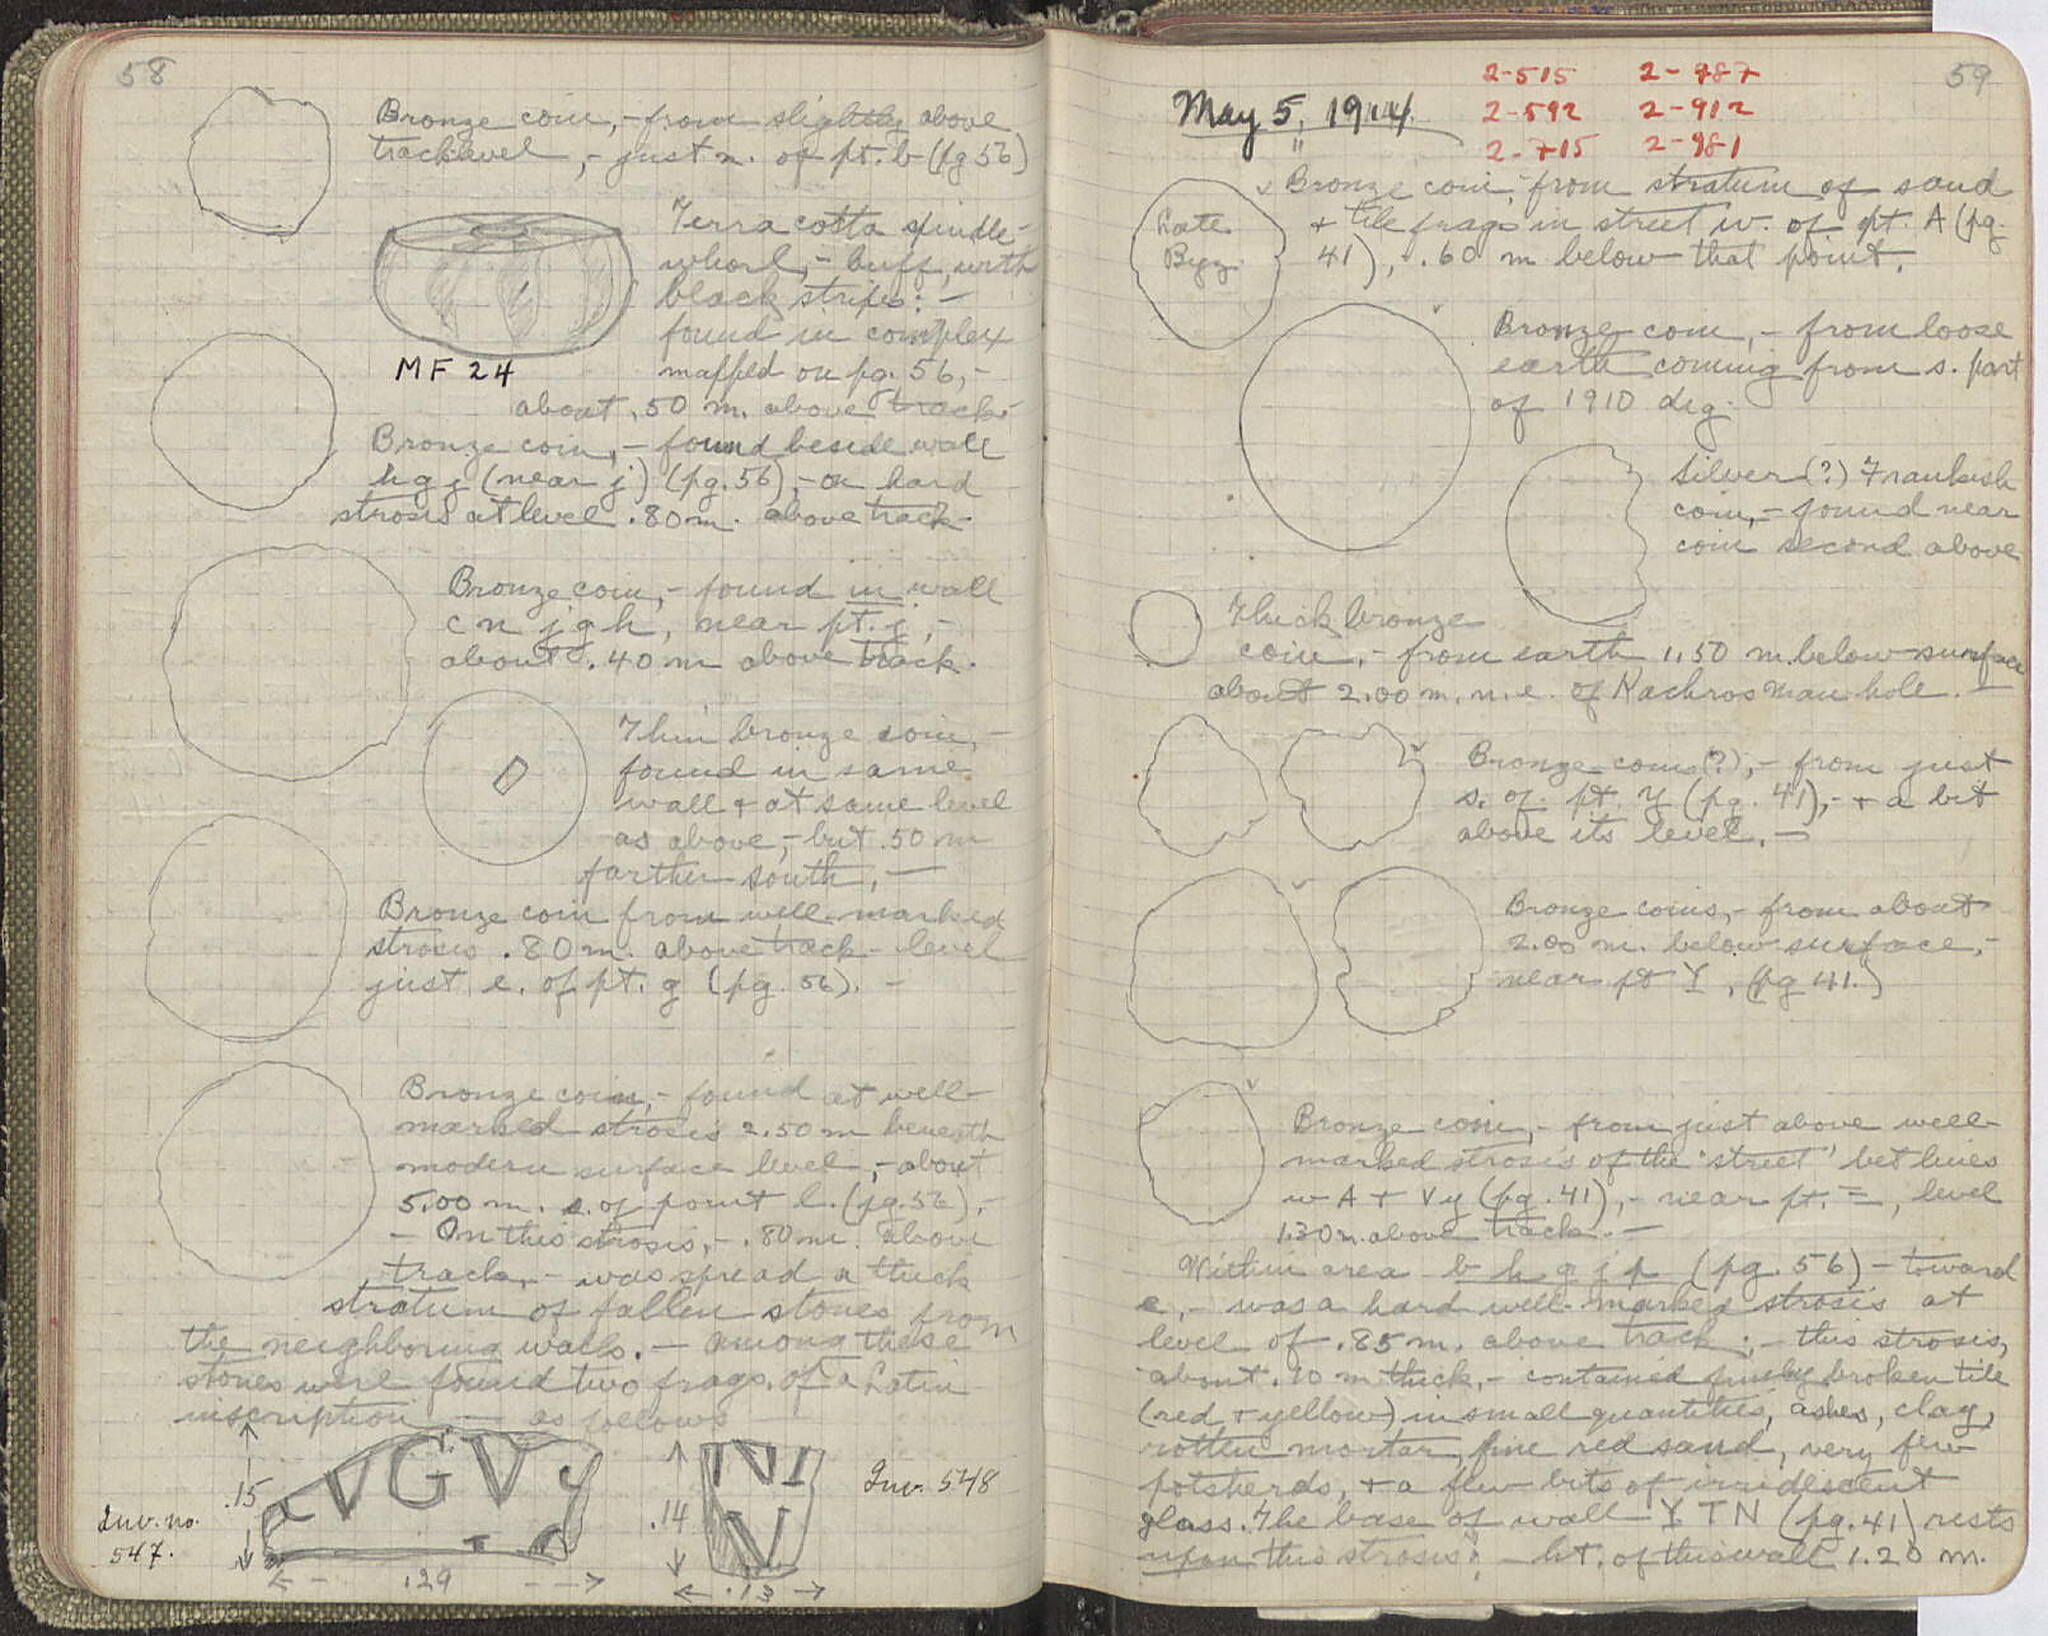 58
Bronze coin, - from slightly above
track level, - just n. of pt. b (pg 56)
Terra cotta spindle-
whorl, - buff, with
black stripes: -
found in complex
mapped on pg. 56, -
MF 24
about .50 m. above track.
Bronze coin, - found beside wall
h g j (near j) (pg. 56), - on hard
strosis at level .80 m. above track.
Bronze coin, - found in wall
c n j g h, near pt. j, -
about .40 m above track.
Thin bronze coin, -
found in same
wall + at same level
as above, - but .50 m
farther south. -
Bronze coin from well-marked
strosis .80 m. above track-level
just e. of pt. g (pg. 56). -
Bronze coin, - found at well-
marked strosis 2.50 m beneath
modern surface level, - about
5.00 m. e. of point l. (pg. 56), -
- On this strosis, - .80 m. above
track, - was spread a thick
stratum of fallen stones from
the neighboring walls. - Among these
stones were found two frags. of a Latin
inscription - as follows
VGV
.15
Inv. no.
547.
.29
NI
V
.14
.13
Inv. 548
59
May 5, 1914.
"
2-515 2-987
2-592 2-912
2-715 2-981
Bronze coin, from stratum of sand
+ tile frags in street w. of pt. A (pg.
41), .60 m below that point.
Late
Byz.
Bronze coin, - from loose
earth coming from s. part
of 1910 dig.
Silver (?) Frankish
coin, - found near
coin second above
Thick bronze
coin, - from earth 1.50 m. below surface
about 2.00 m. n.e. of Rachros Man hole. -
Bronze coins (?), - from just
s. of pt. Y (pg. 41), - + a bit
above its level. -
Bronze coins, - from about
2.00 m. below surface, -
near pt Y, (pg 41.)
Bronze coin, - from just above well-
marked strosis of the "street" bet lines
w A + V y (pg. 41), - near pt. =, level
1.30 m. above track. -
Within area b h g j p (pg. 56) - toward
e, - was a hard well-marked strosis at
level of .85 m. above track; - this strosis,
about .10 m thick, - contained finely broken tile
(red + yellow) in small quantities, ashes, clay,
rotten mortar, fine red sand, very few
potsherds, + a few bits of irridescent
glass. The base of wall Y T N (pg. 41) rests
upon this strosis; - ht. of this wall 1.20 m.